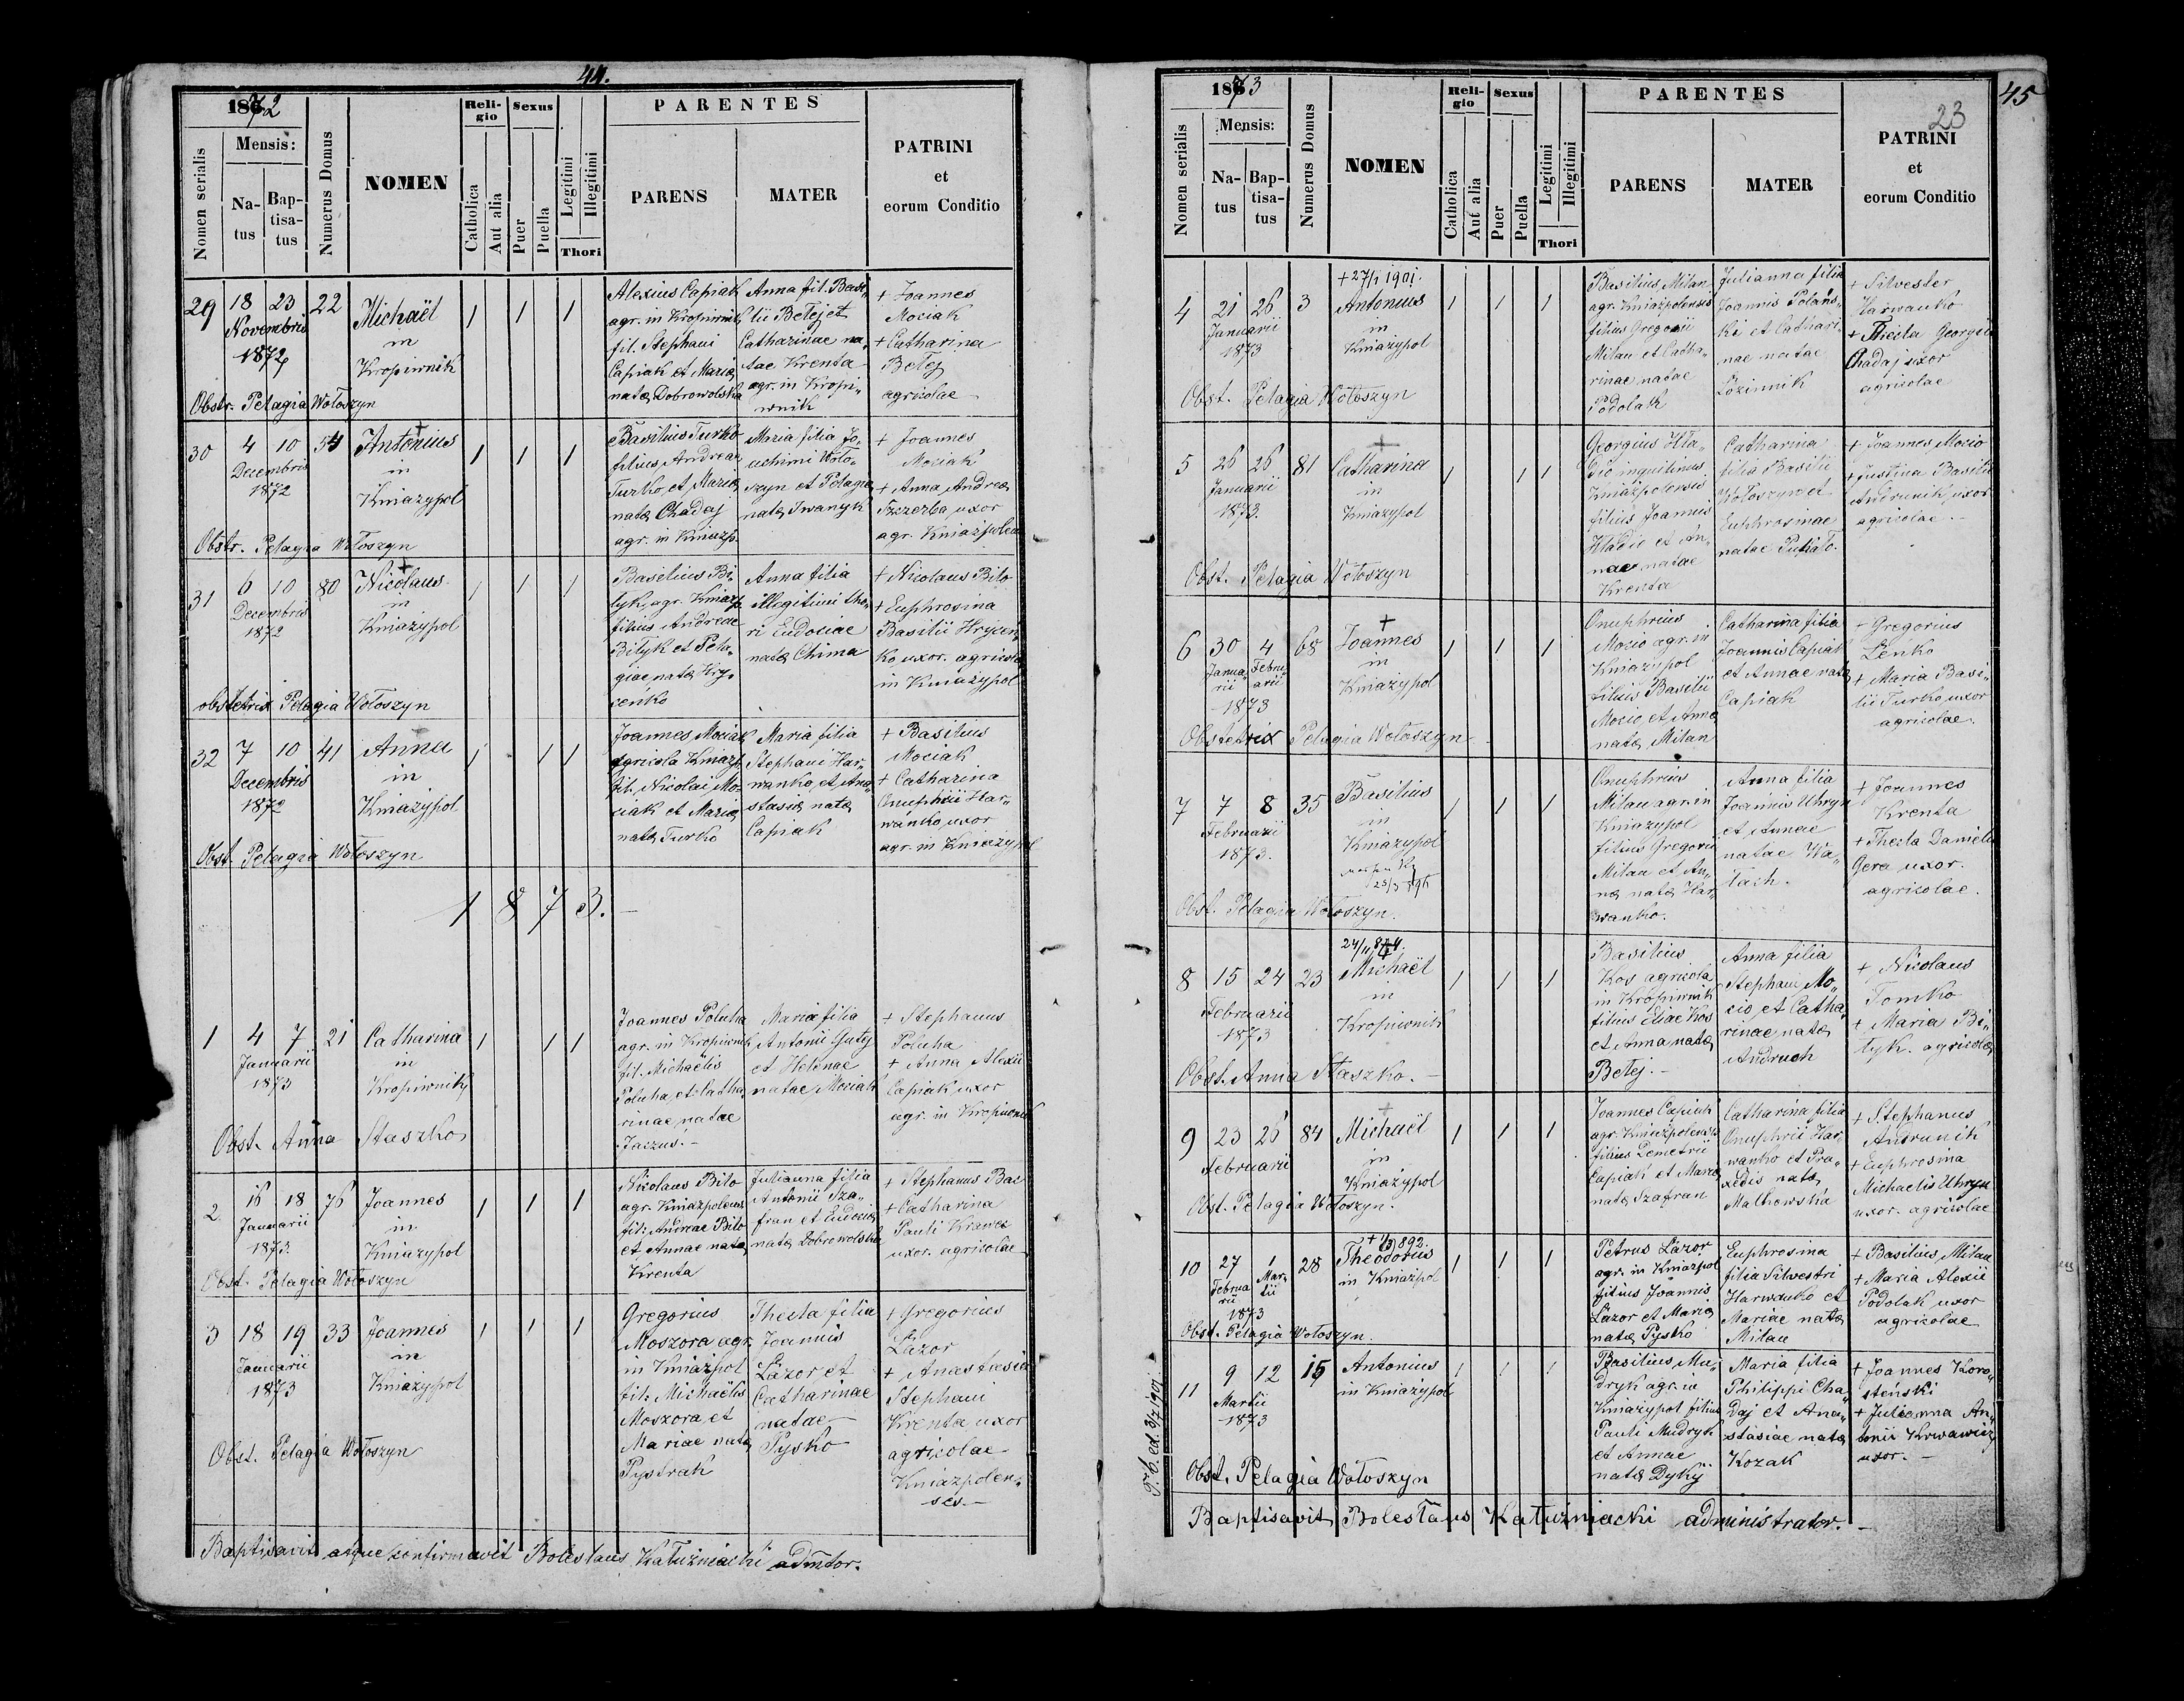 44.
1872
Nomen serialis
Mensis:
Na-
tus
Bap-
tisa-
tus
Numerus Domus
NOMEN
Reli-
gio
Catholica
Aut alia
Sexus
Puer
Puella
Legitimi
Illegitimi
Thori
PARENTES
PARENS
MATER
PATRINI
et
eorum Conditio
29 18 23 22 Michaël 1 1 1
Novembris in
1872 Kropiwnik
Alexius Capiak
agr. in Kropiwnik
fil. Stephani
Capiak et Maria
nata Dobrowolska
Anna fil. Basi-
lii Betej et
Catharinae na-
tae Krenta
agr. in Kropi-
wnik
+ Joannes
Mociak
+ Catharina
Betej
agricolae
Obstr. Pelagia Wołoszyn
30 4 10 54 Antonius 1 1 1
Decembris in
1872 Kniazypol
Basilius Turko
filius Andreae
Turko et Maria
nata Chadaj
agr. in Kniazp.
Maria filia Jo-
achimi Woło-
szyn et Pelagia
nata Iwanyk
+ Joannes
Mociak
+ Anna Andrea
Szczerba uxor
agr. Kniazpolen
Obstr. Pelagia Wołoszyn
31 6 10 80 Nicolaus 1 1 1
Decembris in
1872 Kniazypol
Basilius Bi-
lyk, agr. Kniazp.
filius Andreae
Bilyk et Pela-
giae nata Hry-
cenko
Anna filia
illegitimi tho-
ri Eudociae
nata Chima
+ Nicolaus Bilo
+ Euphrosina
Basilii Hrycen
ko uxor. agricola
in Kniazypol
obstetrix Pelagia Wołoszyn
32 7 10 41 Anna 1 1 1
Decembris in
1872 Kniazypol
Joannes Mociak
agricola Kniazp.
fil. Nicolai Mo-
ciak et Maria
nata Turko
Maria filia
Stephani Har-
wanko, et Ana-
stasia nata
Capiak
+ Basilius
Mociak
+ Catharina
Onuphrii Har-
wanko uxor
agr. in Kniazypol
Obst. Pelagia Wołoszyn
1 8 7 3.
1 4 7 21 Catharina 1 1 1
Januarii in
1873 Kropiwnik
Joannes Poluha
agr. in Kropiwnik
fil. Michaëlis
Poluha, et Catha
rinae natae
Jaczus.
Maria filia
Antonii Gutej
et Helenae
natae Mociak
+ Stephanus
Poluha
+ Anna Alexii
Capiak uxor
agr. in Kropiwnik
Obst. Anna Staszko
2 16 18 76 Joannes 1 1 1
Januarii in
1873. Kniazypol
Nicolaus Bilo
agr. Kniazpolens.
fil. Andreae Bilo
et Annae nata
Krenta
Julianna filia
Antonii Sza-
fran et Eudocia
nata Dobrowolska
+ Stephanus Bac
+ Catharina
Pauli Krawec
uxor. agricolae
Obst. Pelagia Wołoszyn
3 18 19 33 Joannes 1 1 1
Januarii in
1873 Kniazypol
Gregorius
Moszora agr.
in Kniazpol
fil. Michaëlis
Moszora et
Mariae nata
Pystrak
Thecla filia
Joannis
Lazor et
Catharinae
natae
Pysko
+ Gregorius
Lazor
+ Anastasia
Stephani
Krenta uxor
agricolae
Kniazpolen-
ses.
Obst. Pelagia Wołoszyn
Baptisavit atque confirmavit Boleslaus Kałużniacki admtor.
45
23
1873
Nomen serialis
Mensis:
Na-
tus
Bap-
tisa-
tus
Numerus Domus
NOMEN
Reli-
gio
Catholica
Aut alia
Sexus
Puer
Puella
Legitimi
Illegitimi
Thori
PARENTES
PARENS
MATER
PATRINI
et
eorum Conditio
+ 27/1 1901.
4 21 26 3 Antonius 1 1 1
Januarii in
1873 Kniazypol
Basilius Milan
agr. Kniazpolensis
filius Gregorii
Milan et Catha-
rinae natae
Podolak
Julianna filia
Joannis Polans-
ki et Cathari-
nae natae
Lozinnik
+ Silvester
Harwanko
+ Thecla Georgii
Chadaj uxor
agricolae
Obst. Pelagia Wołoszyn
5 26 26 81 Catharina 1 1 1
Januarii in
1873. Kniazypol
Georgius Hla-
dio inquilinus
Kniazpolensis
filius Joannis
Hladio et An-
nae natae
Krenta
Catharina
filia Basilii
Wołoszyn et
Euphrosinae
natae Puhalo.
+ Joannes Mocio
+ Justina Basilii
Andrunik uxor
agricolae.
Obst. Pelagia Wołoszyn
6 30 4 68 Joannes 1 1 1
Janua- Febru- in
rii arii Kniazypol
1873
Onuphrius
Mocio agr. in
Kniazypol
filius Basilii
Mocio, et Anna
nata Milan
Catharina filia
Joannis Capiak
et Annae nata
Capiak
+ Gregorius
Lenko
+ Maria Basi-
lii Turko uxor
agricolae.
Obstetrix Pelagia Wołoszyn
7 7 8 35 Basilius 1 1 1
Februarii in
1873. Kniazypol
Onuphrius
Milan agr. in
Kniazypol
filius Gregorii
Milan et An-
na nata Har-
wanko.
Anna filia
Joannis Uhryn
et Annae
natae Wa-
lach.
+ Joannes
Krenta
+ Thecla Danielis
Gera uxor.
agricolae.
Obst. Pelagia Wołoszyn.
8 15 24 23 Michaël 1 1 1
Februarii in
1873 Kropiwnik
Basilius
Kos agricola
in Kropiwnik
filius Eliae Kos
et Anna nata
Betej.
Anna filia
Stephani Mo-
cio et Catha-
rinae nata
Andruch
+ Nicolaus
Tomko
+ Maria Bi-
lyk. agricola
Obst. Anna Staszko.
9 23 26 84 Michaël 1 1 1
Februarii in
Kniazypol
Joannes Capiak
agr. Kniazpolensis
filius Demetrii
Capiak et Maria
nata Szafran
Catharina filia
Onuphrii Har-
wanko et Pra-
xedis nata
Malhowska
+ Stephanus
Andrunik
+ Euphrosina
Michaelis Uhryn
uxor. agricolae
Obst. Pelagia Wołoszyn.
10 27 1 28 Theodorius 1 1 1
Februa Mar- in Kniazpol
rii tii
1873
Petrus Lazor
agr. in Kniazpol
filius Joannis
Lazor et Maria
nata Pysko
Euphrosina
filia Silvestri
Harwanko et
Mariae nata
Milan
+ Basilius Milan
+ Maria Alexii
Podolak uxor
agricolae
Obst. Pelagia Wołoszyn.
11 9 12 15 Antonius 1 1 1
Martii in Kniazypol
1873
Basilius Mu-
dryk agr. in
Kniazypol filius
Pauli Mudryk
et Annae
nata Dykij
Maria filia
Philippi Cha-
daj et Ana-
stasiae nata
Kozak
+ Joannes Koro-
stenski
+ Julianna An-
tonii Krwawicz
uxor.
Obst. Pelagia Wołoszyn
Baptisavit Boleslaus Kałużniacki administrator.